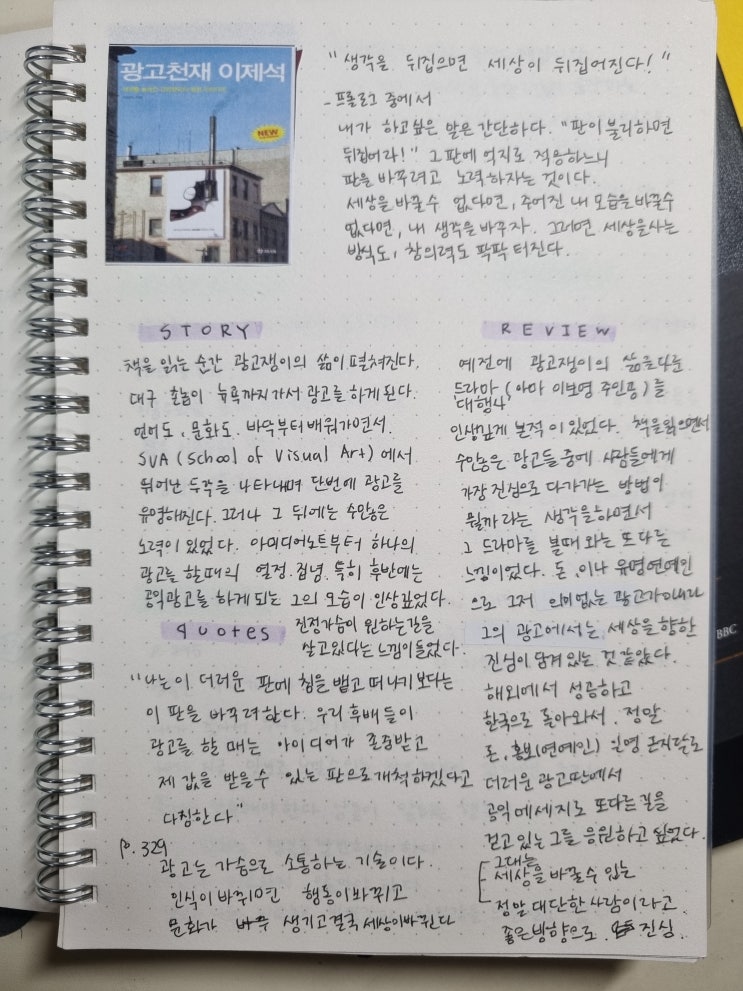 광고천재 이제석
NEW
"생각을 뒤집으면 세상이 뒤집어진다!"
- 프롤로그 중에서
내가 하고싶은 말은 간단하다. "판이 불리하면
뒤집어라!" 그 판에 억지로 적응하느니
판을 바꾸려고 노력하자는 것이다.
세상을 바꿀 수 없다면, 주어진 내 모습을 바꿀수
없다면, 내 생각을 바꾸자. 그러면 세상을 사는
방식도, 창의력도 팍팍 터진다.
STORY
책을 읽는 순간 광고쟁이의 삶이 펼쳐진다.
대구 촌놈이 뉴욕까지가서 광고를 하게 된다.
언어도, 문화도 바닥부터 배워가면서.
SVA (School of Visual Art) 에서
뛰어난 두각을 나타내며 단번에 광고를
유명해진다. 그러나 그 뒤에는 수많은
노력이 있었다. 아이디어노트부터 하나의
광고를 할때의 열정. 집념. 특히 후반에는
공익광고를 하게 되는 그의 모습이 인상깊었다.
진정가슴이 원하는길을
살고있다는 느낌이들었다.
quotes
"나는 이 더러운 판에 침을 뱉고 떠나기 보다는
이 판을 바꾸려 한다. 우리 후배들이
광고를 할 때는 아이디어가 존중받고
제 값을 받을 수 있는 판으로 개척하겠다고
다짐한다"
p. 329
광고는 가슴으로 소통하는 기술이다.
인식이 바뀌면 행동이 바뀌고
문화가 생기고 결국 세상이 바뀐다
REVIEW
예전에 광고쟁이의 삶을 다룬
드라마 (아마 이보영 주인공) 를
'대행사'
인상깊게 본적이 있었다. 책을 읽으면서
수많은 광고들 중에 사람들에게
가장 진심으로 다가가는 방법이
뭘까 라는 생각을 하면서
그 드라마를 볼때 와는 또 다른
느낌이었다. 돈, 이나 유명연예인
으로 그저 의미없는 광고가 아니라
그의 광고에서는 세상을 향한
진심이 담겨 있는 것 같았다.
해외에서 성공하고
한국으로 돌아와서, 정말
돈, 홍보(연예인)
더러운 광고판에서
공익 메세지로 또다른 길을
걷고 있는 그를 응원하고 싶었다.
그대는
세상을 바꿀수 있는
정말 대단한 사람이라고
좋은 방향으로. 진심.
BBC